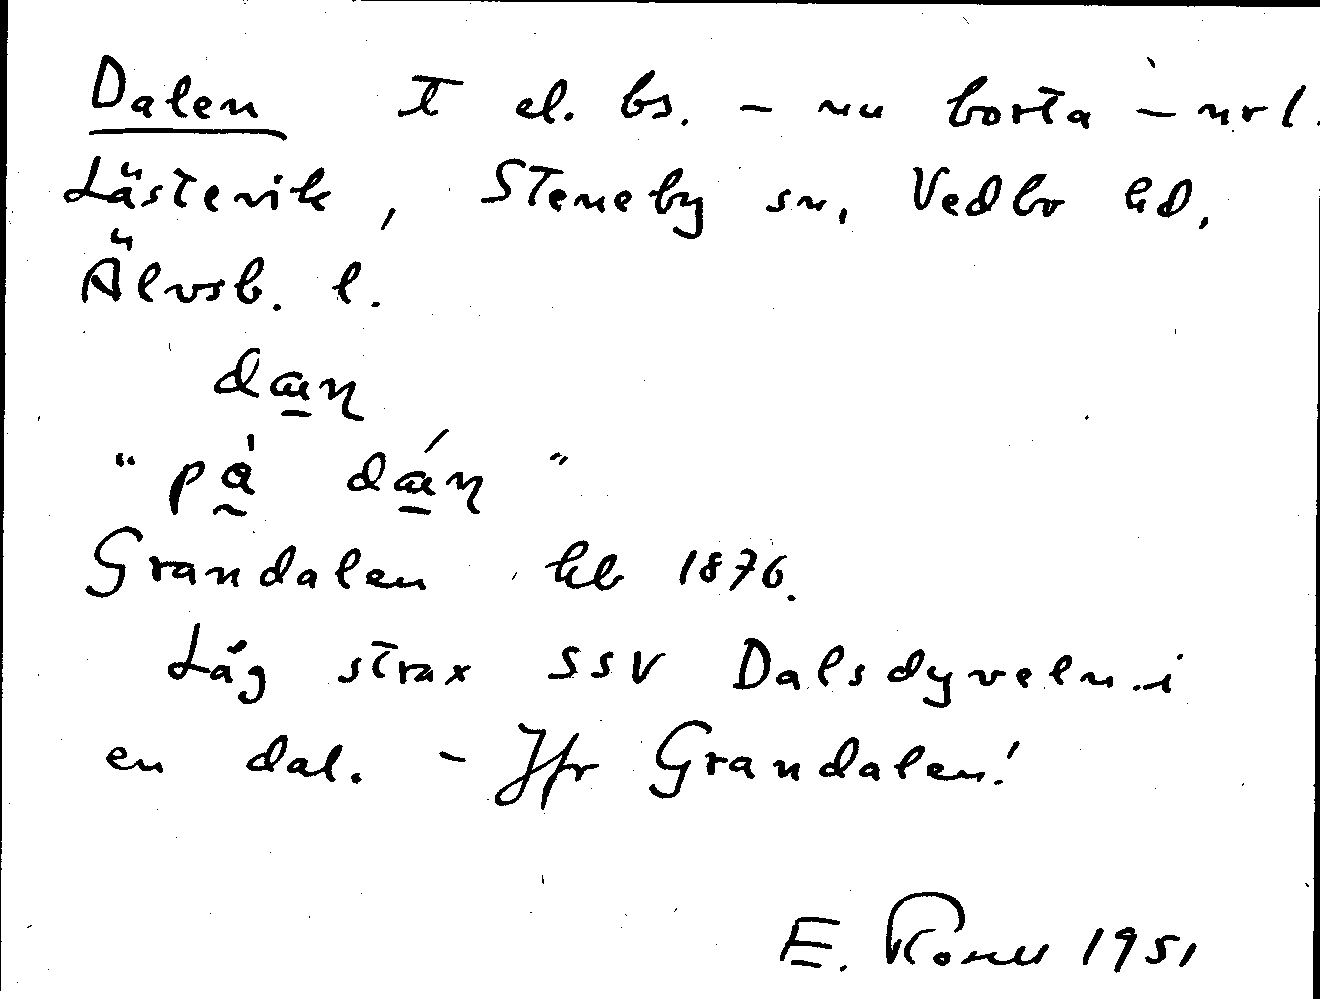 Dalen T el. bs. – nu borta – nrl.
Lästevik, Steneby sn, Vedbo hd,
Älvsb. l.
dan
"på dán"
Grandalen hb 1876.
Låg strax SSV Dalsdyveln i
en dal. – Jfr Grandalen!
E. 1951